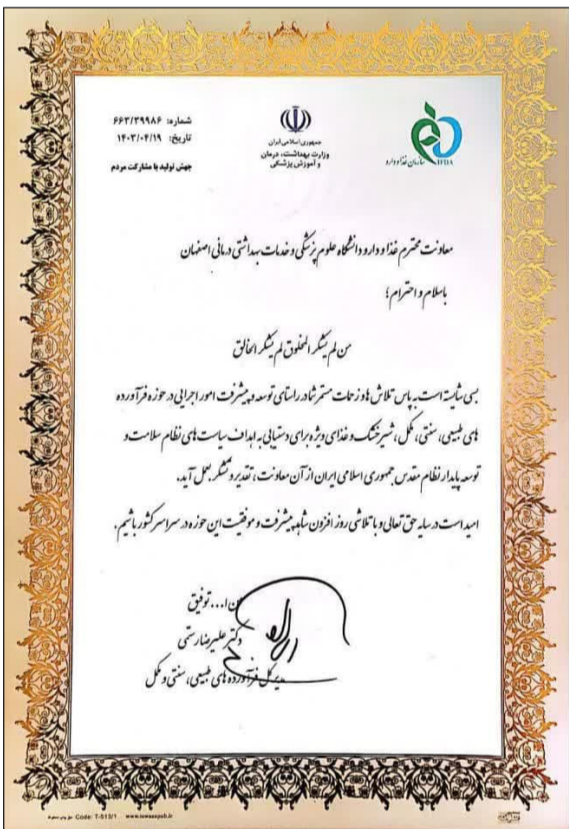 شماره: ۶۶۳/۳۹۹۸۶
تاریخ: ۱۴۰۳/۰۴/۱۹
جهش تولید با مشارکت مردم
جمهوری اسلامی ایران
وزارت بهداشت، درمان
و آموزش پزشکی
IFDA
سازمان غذا و دارو
معاونت محترم غذا و دارو دانشگاه علوم پزشکی و خدمات بهداشتی درمانی اصفهان
باسلام و احترام؛
من لم یشکر المخلوق لم یشکر الخالق
بسی شایسته است به پاس تلاش ها و زحمات مستمر شما در راستای توسعه و پیشرفت امور اجرایی در حوزه فرآورده
های طبیعی، سنتی، مکمل، شیرخشک و غذای ویژه برای دستیابی به اهداف سیاست های نظام سلامت و
توسعه پایدار نظام مقدس جمهوری اسلامی ایران از آن معاونت، تقدیر و تشکر بعمل آید.
امید است در سایه حق تعالی و با تلاشی روز افزون شاهد پیشرفت و موفقیت این حوزه در سراسر کشور باشیم.
من ا... توفیق
دکتر علیرضا رستمی
مدیر کل فرآورده های طبیعی، سنتی و مکمل
Code: T-513/1 www.tawaanpub.ir